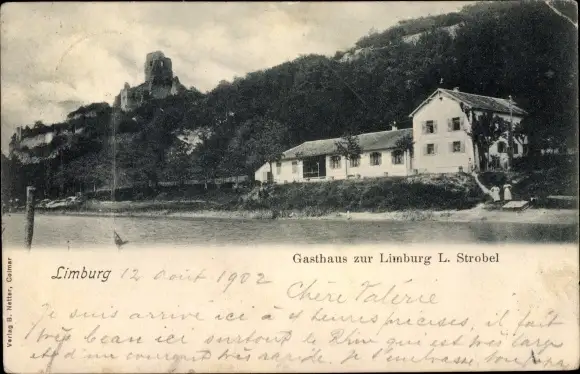 Gasthaus zur Limburg L. Strobel
Limburg 12 Août 1902
Chère Valérie
Je suis arrivé ici à 4 heures précises, il fait
très beau ici surtout le Rhin qui est très large
et d'un courant très rapide. Je t'embrasse, ton papa
Verlag B. Netter, Colmar